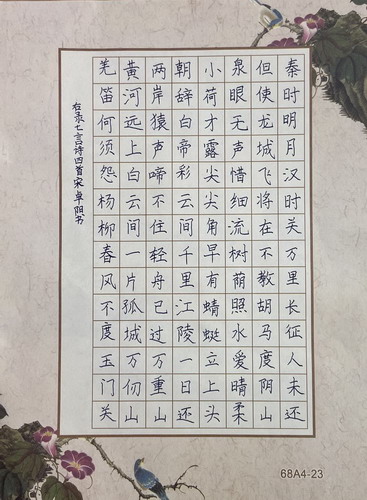 秦时明月汉时关万里长征人未还
但使龙城飞将在不教胡马度阴山
泉眼无声惜细流树荫照水爱晴柔
小荷才露尖尖角早有蜻蜓立上头
朝辞白帝彩云间千里江陵一日还
两岸猿声啼不住轻舟已过万重山
黄河远上白云间一片孤城万仞山
羌笛何须怨杨柳春风不度玉门关
右录七言诗四首宋卓阳书
68A4-23